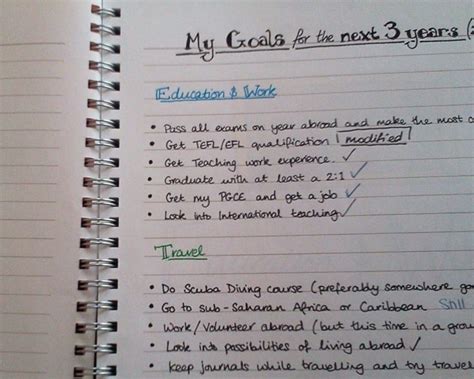 My Goals for the next 3 years (
Education & Work
• Pass all exams on year abroad and make the most o
• Get TEFL/EFL qualification modified
• Get Teaching work experience. ✓
• Graduate with at least a 2:1 ✓
• Get my PGCE and get a job ✓
• Look into International teaching ✓
Travel
• Do Scuba Diving course (preferably somewhere
• Go to sub-Saharan Africa or Caribbean Still
• Work/Volunteer abroad (but this time in a
• Look into possibilities of living abroad ✓
• Keep journals while travelling and try